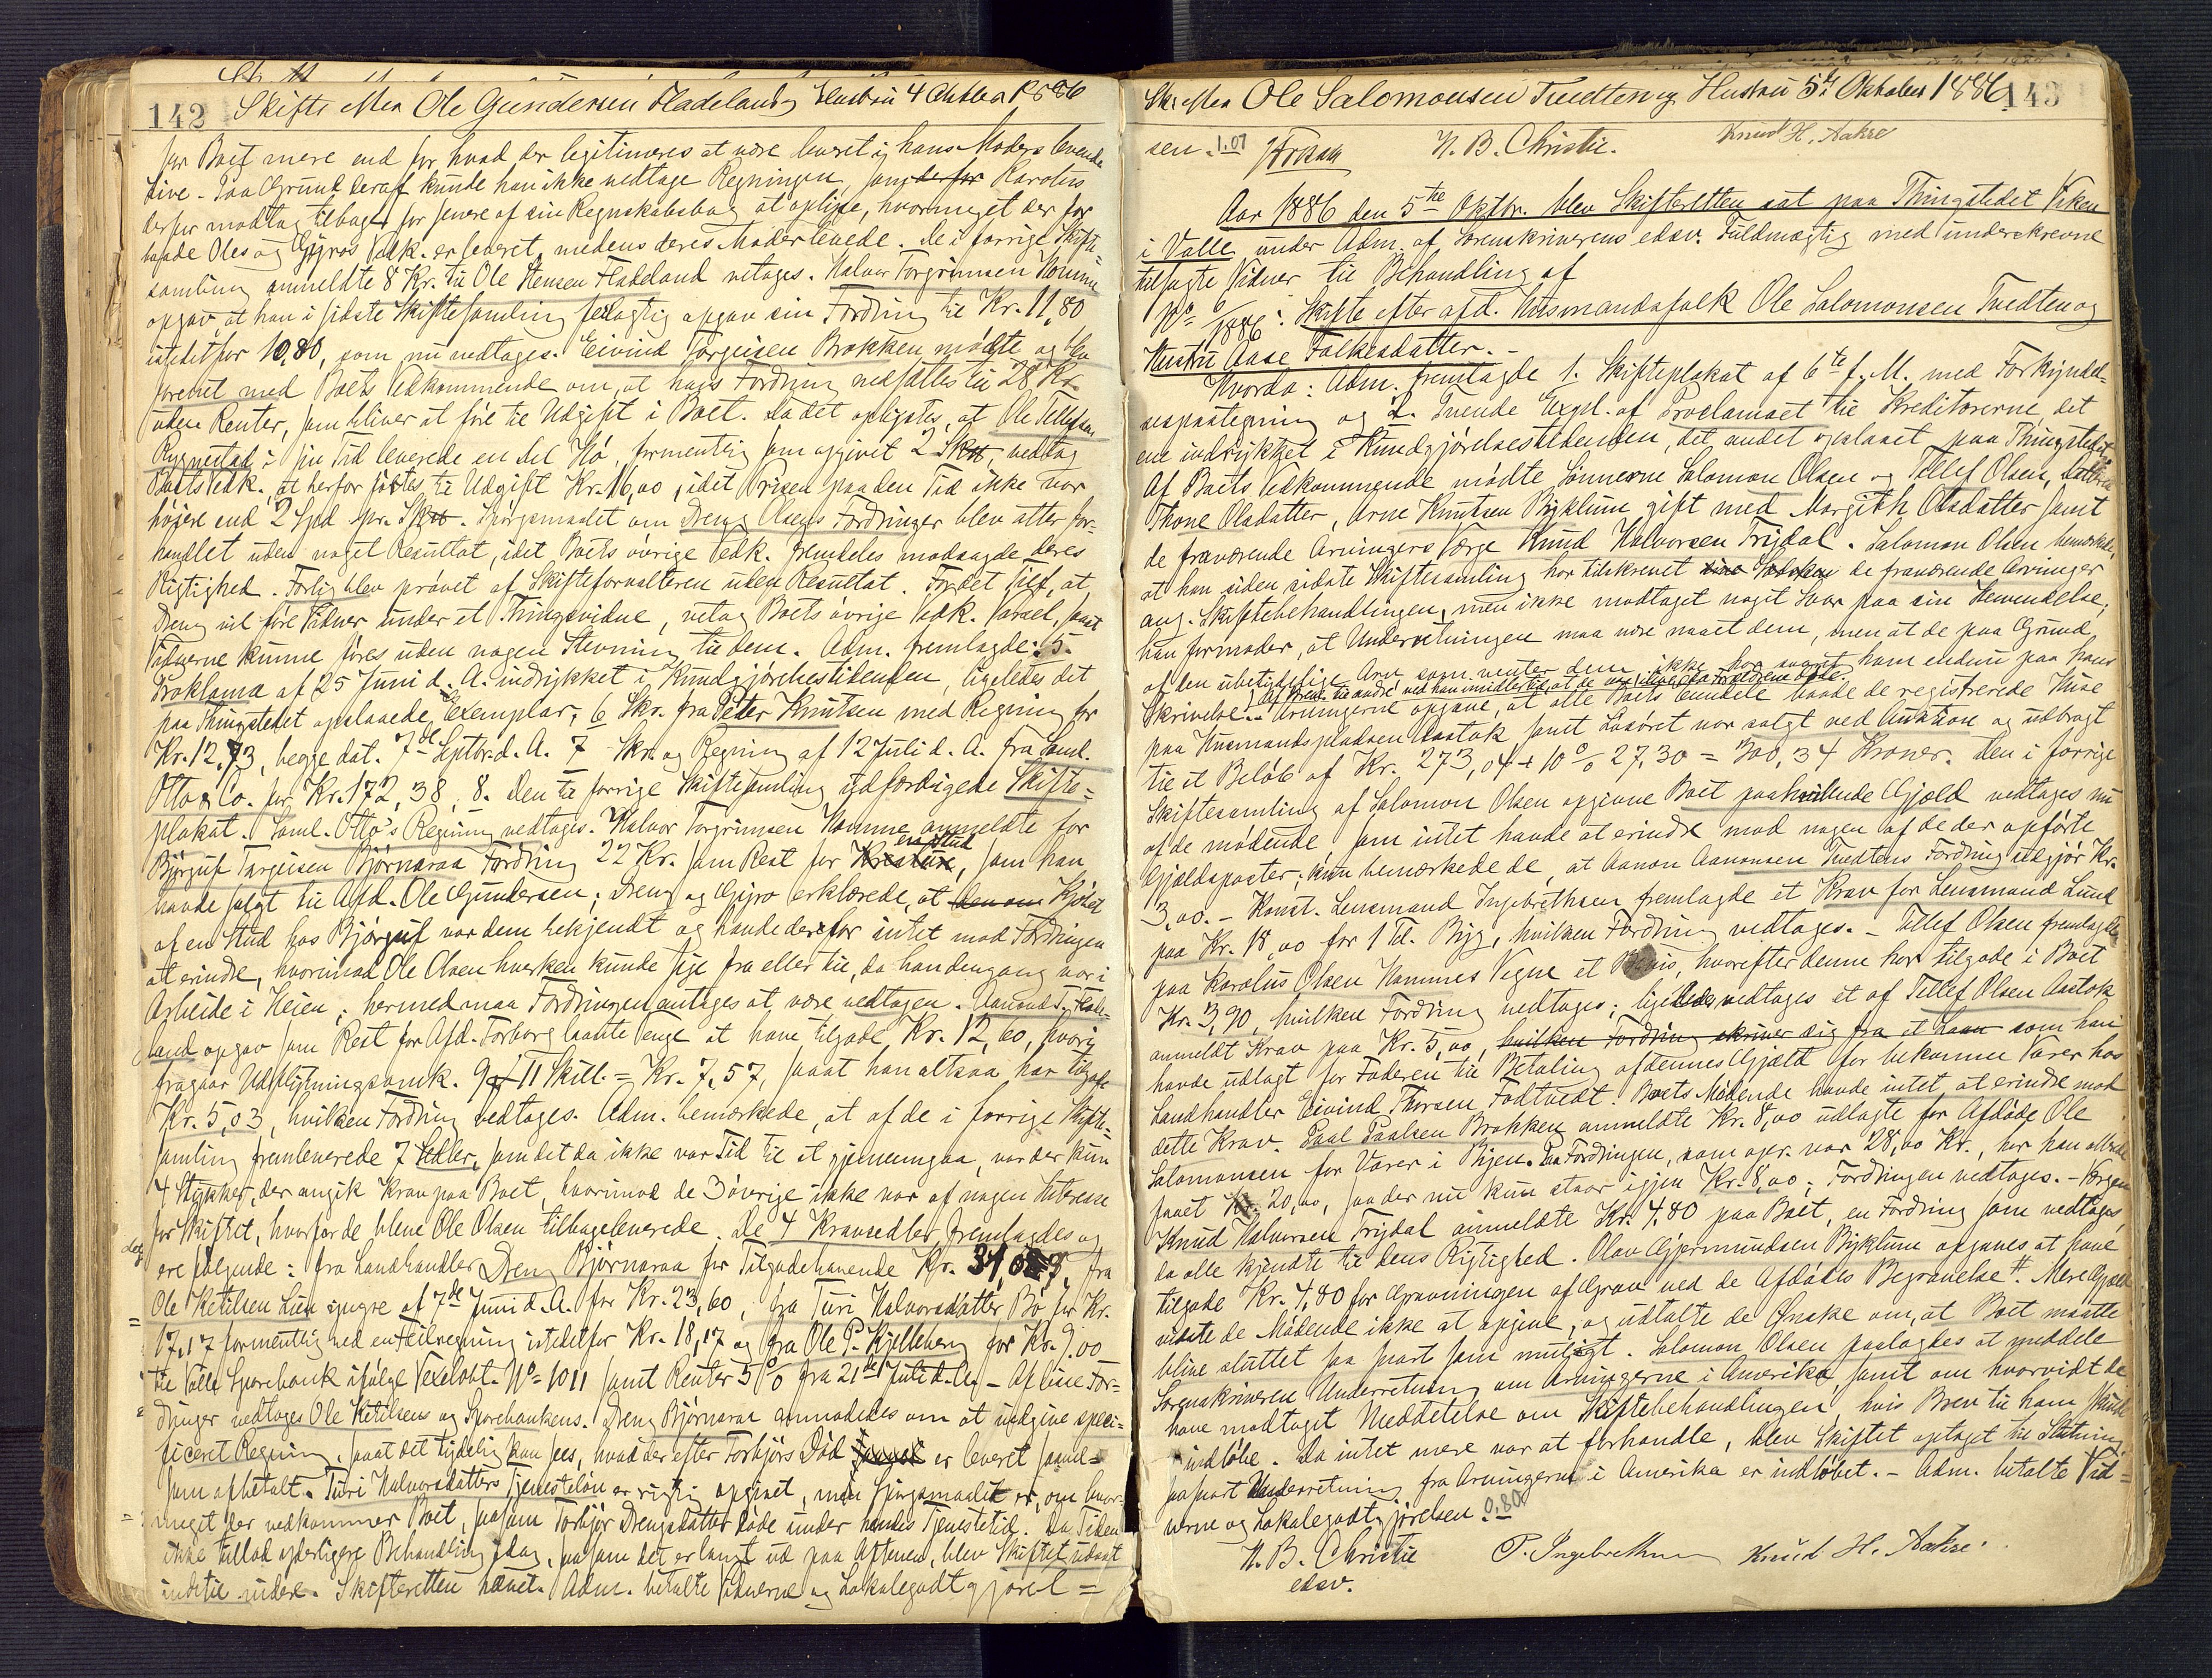 142 Skifte efter Ole Gundersen Fladeland og Hustru 4 Oktober 1886
for Boet mere end for hvad der legitimeres at være leveret i hans Moders levende
Live. Paa Grund deraf kunde han ikke vedtage Regningen, som derfor Karolus
derfor modtog tilbage for senere af sin Regnskabsbog at oplyse, hvormeget der for
baade Oles og Gyros Vedk. er leveret, medens deres Moder levede. De i forrige Skifte-
samling anmeldte 8 Kr. til Ole Stensen Fladeland vetages. Halvor Torgrimsen Homme
opgav, at han i sidste Skiftesamling feilagtig opgav sin Fordring til Kr. 11,80
istedetfor 10,80, som nu vedtages. Eivind Torgeisen Brokken mødte og blev
forenet med Boets Vedkommende om, at hans Fordring nedsættes til 28 Kr.
uden Renter, som bliver at føre til Udgift i Boet. Da det oplystes, at Ole Tellefsen
Rygnestad i sin Tid leverede en del Hø, formentlig som opgivet 2 Skp, vedtog
Boets Vedk., at herfor føres til Udgift Kr. 16,00, idet Prisen paa den Tid ikke var
højere end 2 Spd pr. Skp. Spørgsmaalet om Dreng Olsens Fordringer blev atter for-
handlet uden noget Resultat, idet Boets øvrige Vedk. fremdeles modsagde deres
Rigtighed. Forlig blev prøvet af Skifteforvalteren uden Resultat. For det Tilf., at
Dreng vil føre Vidner under et Thingsvidne, vetog Boets øvrige Vedk. Varsel, samt
Vidnerne kunne føres uden nogen Stevning til dem. Adm. fremlagde: 5.
Proklama af 25 Juni d. A. indrykket i Kundgjørelsestidenden, ligeledes det
paa Thingstedet opslaaede Exemplar; 6 Skr. fra Peter Knutsen med Regning for
Kr. 12,73, begge dat. 7de Septbr. d. A. 7 Skr. og Regning af 12 Juli d. A. fra Saml.
Otto & Co. for Kr. 172,38, 8. Den til forrige Skiftesamling udfærdigede Skifte-
plakat. Saml. Otto's Regning vedtages. Halvor Torgrimsen Homme anmeldte for
Bjørguf Targeisen Bjørnaraa Fordring 22 Kr. som Rest for en Stud, som han
havde solgt til Afd. Ole Gundersen; Dreng og Gyro erklærede, at den om Kjøbet
af en Stud hos Bjørguf var dem bekjendt og havde derfor intet mod Fordringen
at erindre, hvorimod Ole Olsen hverken kunde sige fra eller til, da han dengang var i
Arbeide i Heien; hermed maa Fordringen antages at være vedtagen. Aanund T. Flade-
land opgav som Rest for Afd. Torborg laante Penge at have tilgode Kr. 12,60, hvori
fragaar Udskiftningsomk. 9 11 Skill. = Kr. 7,57, saaat han altsaa har tilgode
Kr. 5,03, hvilken Fordring vedtages. Adm. bemærkede, at af de i forrige Skifte-
samling fremleverede 7 Sedler, som det da ikke var Tid til at gjennemgaa, var der kun
4 Stykker, der angik Krav paa Boet, hvorimod de 3 øvrige ikke var af nogen Interesse
for Skiftet, hvorfor de bleve Ole Olsen tilbageleverede. De 4 Kravsedler fremlagdes og
ere følgende: fra Landhandler Dreng Bjørnaraa for Tilgodehavende Kr. 34,083, fra
Ole Ketilsen Lien af 7de Juni d. A. for Kr. 23,60, fra Turi Halvorsdatter Bø for Kr.
17,17 formentlig ved en Feilregning istedetfor Kr. 18,17 og fra Ole P. Kjelleberg for Kr. 9,00
til Valle Sparebank ifølge Vexelobl. No 1011 samt Renter 5 % fra 21de Juli d. A. – Af disse For-
dringer vedtages Ole Ketilsens og Sparebankens. Dreng Bjørnaraa anmodedes om at indgive speci-
ficeret Regning, saaat det tydelig kan sees, hvad der efter Torbjørs Død er leveret saavel-
som afbetalt. Turi Halvorsdatters Tjenesteløn er rigtig opgivet, men Spørgsmaalet er, om hvor-
meget der vedkommer Boet, saasom Torbjør Drengsdatter døde under hendes Tjenestetid. Da Tiden
ikke tillod yderligere Behandling idag, saasom det er langt ud paa Aftenen, blev Skiftet udsat
indtil videre. Skifteretten hævet. Adm. betalte Vidnerne og Lokalegodtgjørel-
Sk. efter Ole Salomonsen Tvedten og Hustru 5te Oktober 1886 143
sen. 1.07 N. B. Christie. Knud H. Aakre
Aar 1886 den 5te Oktbr. blev Skifteretten sat paa Thingstedet Viken
i Valle under Adm. af Sorenskriverens edsv. Fuldmægtig med underskrevne
tilsagte Vidner til Behandling af
No 6/1886: Skifte efter afd. Husmandsfolk Ole Salomonsen Tvedten og
Hustru Aase Folkesdatter. –
Hvorda: Adm. fremlagde 1. Skifteplakat af 6te f. M. med Forkyndel-
sespaategning og 2. Tvende Expl. af Proclamaet til Kreditorerne, det
ene indrykket i Kundgjørelsestidenden, det andet opslaaet paa Thingstedet.
Af Boets Vedkommende mødte Sønnerne Salomon Olsen og Tellef Olsen, Datteren
Thone Olsdatter, Arne Knutsen Byklum gift med Margith Olsdatter samt
de fraværende Arvingers Værge Knud Halvorsen Trydal. Salomon Olsen bemærkede,
at han siden sidste Skiftesamling har tilskrevet de fraværende Arvinger
ang. Skiftebehandlingen, men ikke modtaget noget Svar paa sin Henvendelse;
han formoder, at Underretningen maa være naaet dem, men at de paa Grund
af den ubetydelige Arv, som venter dem, ikke har svaret ham endnu paa hans
Skrivelse. Af Brev til andre ved han imidlertid, at de var ilive da Forældrene døde.
Arvingerne opgave, at alle Boets Eiendele baade de registrerede Huse
paa Husmandspladsen Aastok samt Løsøret var solgt ved Auktion og udbragt
til et Beløb af Kr. 273,04 + 10 % 27,30 = 300,34 Kroner. Den i forrige
Skiftesamling af Salomon Olsen opgivne Boet paahvilende Gjæld vedtages nu
af de mødende som intet havde at erindre mod nogen af de der opførte
Gjældsposter; kun bemærkede de, at Aanon Aanonsen Tvedtens Fordring udgjør Kr.
3,00. – Konst. Lensmand Ingebrethsen fremlagde et Krav for Lensmand Lund
paa Kr. 18,00 for 1 Td. Byg, hvilken Fordring vedtages. – Tellef Olsen fremlagde
paa Karolus Olsen Hommes Vegne et Bevis, hvorefter denne har tilgode i Boet
Kr. 3,90, hvilken Fordring vedtages; ligeledes vedtages et af Tellef Olsen Aastok
anmeldt Krav paa Kr. 5,00, hvilken Fordring skriver sig fra et Laan som han
havde udlagt for Faderen til Betaling af dennes Gjæld for bekomne Varer hos
Landhandler Eivind Thorsen Fodtvedt. Boets Mødende havde intet at erindre mod
dette Krav. Paal Paalsen Brokken anmeldte Kr. 8,00 udlagte for Afdøde Ole
Salomonsen for Varer i Byen. Paa Fordringen, som opr. var 28,00 Kr., har han allerede
faaet Kr. 20,00, saa der nu kun staar igjen Kr. 8,00; Fordringen vedtages. – Værgen
Knud Halvorsen Trydal anmeldte Kr. 4,80 paa Boet, en Fordring som vedtages,
da alle kjendte til dens Rigtighed. Olav Gjermundsen Byklum opgaves at have
tilgode Kr. 4,80 for Gravningen af Grav ved de Afdødes Begravelse. Mere Gjæld
vidste de Mødende ikke at opgive, og udtalte de Ønske om, at Boet maatte
blive sluttet saa snart som muligt. Salomon Olsen paalagdes at meddele
Sorenskriveren Underretning om Arvingerne i Amerika, samt om hvorvidt de
have modtaget Meddelelse om Skiftebehandlingen, hvis Brev til ham skulde
indløbe. Da intet mere var at forhandle, blev Skiftet optaget til Slutning
saasnart Underretning fra Arvingerne i Amerika er indløbet. – Adm. betalte Vid-
nerne og Lokalegodtgjørelsen 0.80
N. B. Christie P. Ingebrethsen Knud H. Aakre.
edsv.